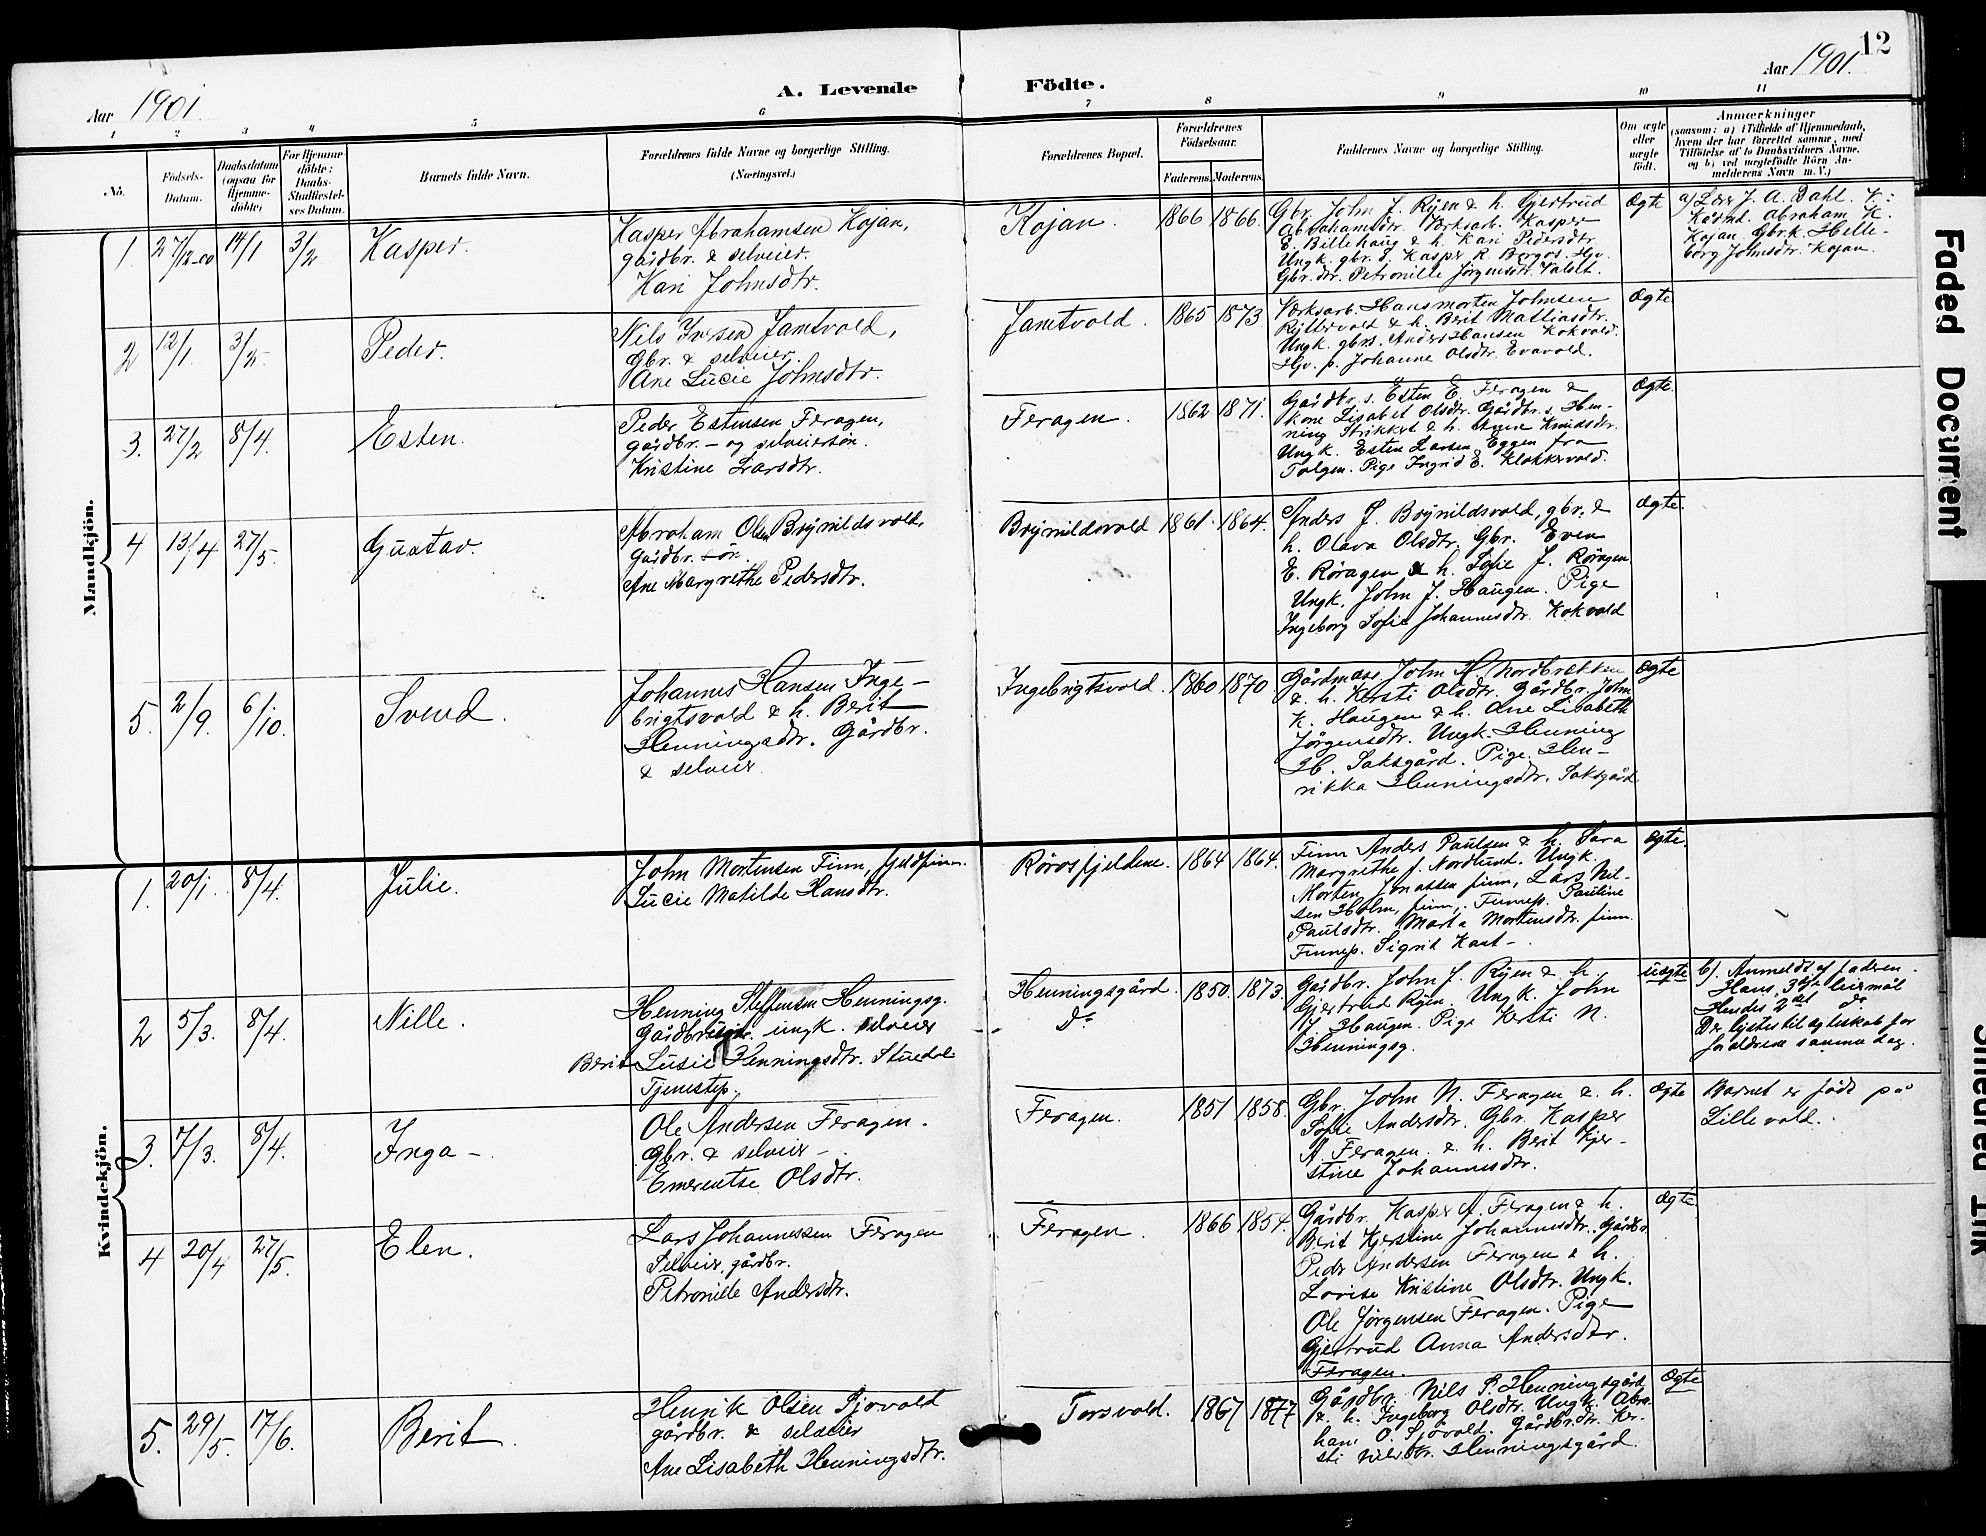 12
Aar 1901.
A. Levende Födte.
Aar 1901.
1 2 3 4 5 6 7 8 9 10 11
No.
Födsels-Datum.
Daabsdatum (ogsaa for Hjemme-döbte)
For Hjemme-döbte: Daabs-Stadfæstel-ses Datum.
Barnets fulde Navn.
Forældrenes fulde Navne og borgerlige Stilling. (Næringsvei.)
Forældrenes Bopæl.
Forældrenes Födselsaar.
Faderens. Moderens.
Faddernes Navne og borgerlige Stilling.
Om ægte eller uægte födt.
Anmærkninger
(saasom: a) i Tilfælde af Hjemmedaab,
hvem der har forrettet samme, med
Tilföielse af to Daabsvidners Navne,
og b) ved uægtefödte Börn An-
melderens Navn m. V.)
Mandkjön.
1. 27/12-00 14/1 3/2 Kasper.
Kasper Abrahamsen Kojan,
gårdbr. & selveier.
Kari Johnsdtr.
Kojan. 1866 1866.
Gbr. John J. Ryen & h. Gjertrud
Abrahamsdtr. Værksarb. Kasper
E. Billehaug & h. Kari Pedersdtr.
Ungk. gbr.s. Kasper K. Bergos. Hjv.
Gbr.dtr. Petronille Jørgensdtr. Valset.
Ægte
a) Lærer J. A. Dahl. K:
Kårmd. Abraham K.
Kojan Gbrk. Helle-
borg Johnsdtr. Kojan.
2 12/1. 3/2- Peder.
Nils Iversen Jamtvold,
Gbr. & selveier.
Ane Lucie Johnsdtr.
Jamtvold. 1865 1873
Værksarb. Hansmorten Johnsen
Ryttervold & h. Berit Mattiasdtr.
Ungk. gbrs. Anders Hansen Kokvold.
Hjv. p. Johanne Olsdtr. Evavold.
Ægte
3. 27/2 8/4. Esten.
Peder Estensen Feragen,
gårdbr. - og selveiersön.
Kristine Larsdtr.
Feragen. 1862 1871.
Gårdbr.s. Esten E. Feragen &
kone Lisabet Olsdtr. Gårdbr.s. Hen-
ning Strikkert & h. Anne Knudsdtr.
Ungk. Esten Larsen Eggen fra
Tolgen. Pige Ingrid E. Klokkervold.
Ægte.
4 13/4 27/5. Gustav.
Abraham Olsen Brynildsvold,
Gårdbr. sön.
Ane Margrethe Pedersdtr.
Brynildsvold 1861. 1864.
Anders J. Brynildsvold, gbr. &
h. Olava Olsdtr. Gbr. Even
E. Røragen & h. Sofie J. Røragen
Ungk. John J. Haugen. Pige
Ingeborg Sofie Johannesdtr. Kokvold
Ægte.
5. 2/9. 6/10. Svend.
Johannes Hansen Inge-
brigtsvold & h. Berit
Henningsdtr. Gårdbr.
& selveier.
Ingebrigtsvold. 1860 1870
Gårdmand John H. Nordbrekken
& h. Kersti Olsdtr. Gårdbr. John
K. Haugen & h. Ane Lisabeth
Jörgensdtr. Ungk. Henning
H. Saksgård. Pige. Hen-
rikka Henningsdtr. Saksgård
Ægte
Kvindekjön.
1. 20/1. 8/4. Julie.
John Mortensen Finn, fjeldfinn.
Lucie Matilde Hansdtr.
Rörosfjeldene. 1864 1864.
Finn Anders Paulsen & h. Sara
Margrethe f. Nordlund. Ungk.
Morten Jonassen finn, Lars Nil-
sen Holm, finn, Finnep. Pauline
Paulsdtr. Marta Mortensdtr. finn.
Finnep. Sigrit Kant-
Ægte.
2 5/3. 8/4. Nille.
Henning Steffensen Henningsg.
Gårdbruger. ungk. selveier
Berit Lusie Henningsdtr. Stuedal
Tjenestep.
Henningsgård. 1850. 1873.
do
Gårdbr. John J. Ryen & h.
Gjertrud Ryen. Ungk. John
J. Haugen. Pige Kersti N.
Henningsg.
uægte
b). Anmeldt af faderen.
Hans 3die leiermål
Hendes 2det do
Der lystes til ægteskab for
forældrene samme dag.
3. 7/3. 8/4. Inga -
Ole Andersen Feragen.
Gbr. & selveier -
Emerentse Olsdtr.
Feragen. 1851 1858.
Gbr. John N. Feragen & h.
Sofie Andersdtr. Gbr. Kasper
A. Feragen. & h. Berit Kjer-
stine Johannesdtr.
Ægte
Barnet er født på
Lillevold.
4 20/4 27/5. Elen.
Lars Johannessen Feragen
Selveier, gårdbr.
Petronille Andersdtr.
Feragen. 1866 1854.
Gårdbr. Kasper A. Feragen & h.
Berit Kjerstine Johannesdtr. Gårdbr.
Peder Andersen Feragen & h.
Lovise Kristine Olsdtr. Ungk.
Ole Jørgensen Feragen. Pige
Gjertrud Anna Andersdtr.
Feragen.
Ægte
5. 29/5. 17/6. Berit.
Henrik Olsen Sjövold
gårdbr. & selveier
Ane Lisabeth Henningsdtr.
Torsvold. 1867 1877
Gårdbr. Nils P. Henningsgård
& h. Ingeborg Olsdtr. Ungk. Abra-
ham O. Sjövold. Gårdbr.dtr. Ker-
sti Nilsdtr. Henningsgård.
Ægte
Faded Document
Smeared Ink